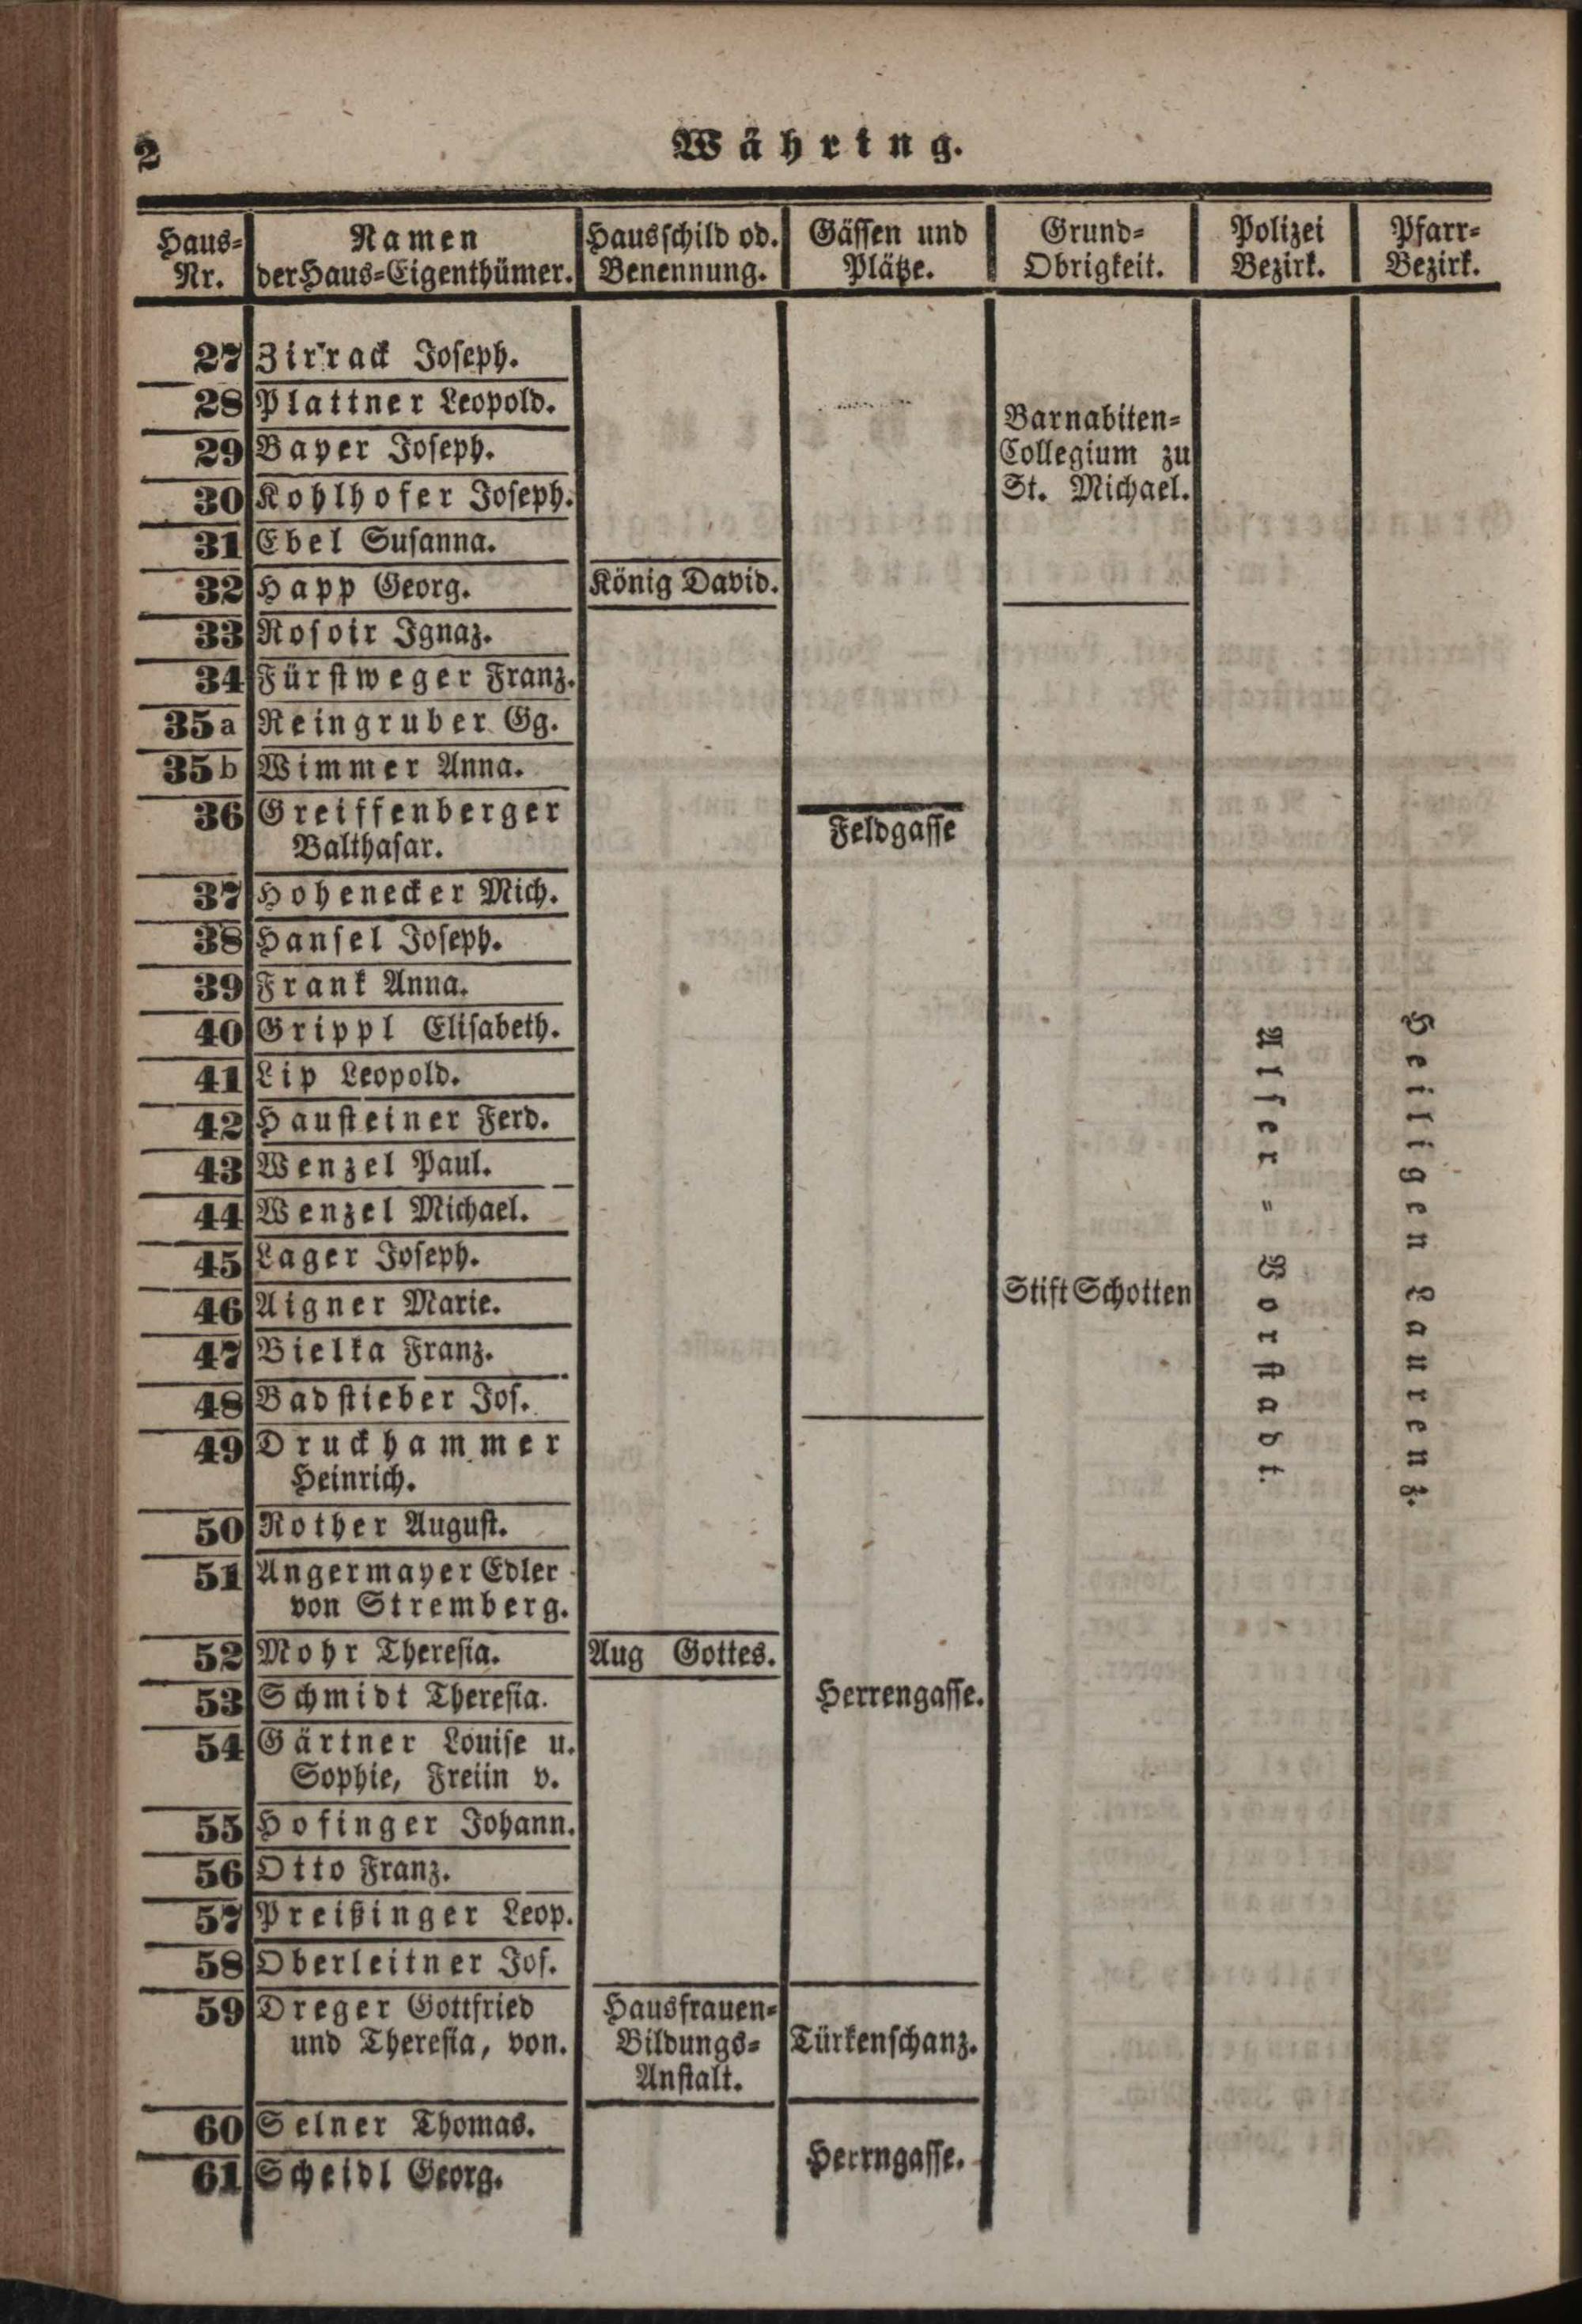 2
Währing.
Haus-Nr. Namen der Haus-Eigenthümer. Hausschild od. Benennung. Gässen und Plätze. Grund-Obrigkeit. Polizei Bezirk. Pfarr-Bezirk.
27 Zirrack Joseph.
28 Plattner Leopold.
29 Bayer Joseph.
30 Kohlhofer Joseph.
Barnabiten-
Collegium zu
St. Michael.
31 Ebel Susanna.
32 Happ Georg. König David.
33 Rosoir Ignaz.
34 Fürstweger Franz.
35a Reingruber Gg.
35b Wimmer Anna.
36 Greiffenberger
Balthasar.
Feldgasse
37 Hohenecker Mich.
38 Hansel Joseph.
39 Frank Anna.
40 Grippl Elisabeth.
41 Lip Leopold.
42 Hausteiner Ferd.
43 Wenzel Paul.
44 Wenzel Michael.
45 Lager Joseph.
46 Aigner Marie. Stift Schotten
47 Bielka Franz.
48 Badstieber Jos.
49 Druckhammer
Heinrich.
50 Rother August.
51 Angermayer Edler
von Stremberg.
52 Mohr Theresia. Aug Gottes.
53 Schmidt Theresia. Herrengasse.
54 Gärtner Louise u.
Sophie, Freiin v.
55 Hofinger Johann.
56 Otto Franz.
57 Preißinger Leop.
58 Oberleitner Jos.
59 Dreger Gottfried
und Theresia, von.
Hausfrauen-
Bildungs-
Anstalt.
Türkenschanz.
60 Selner Thomas.
61 Scheidl Georg.
Herrngasse.
Alser-Vorstadt.
Heiligen Laurenz.